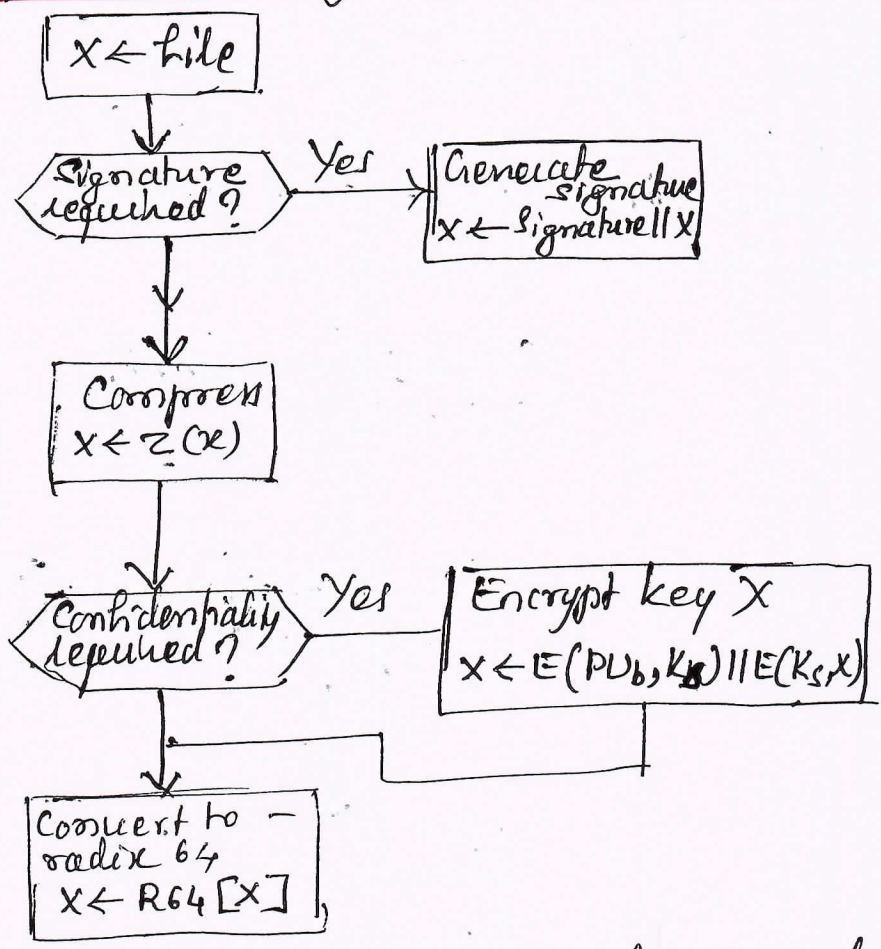 X ← file
Signature
required ?
Yes
Generate
signature
X ← Signature || X
Compress
X ← Z (x)
Confidentiality
required ?
Yes
Encrypt key X
X ← E(PUb, Ks) || E(Ks, X)
Convert to -
radix 64
X ← R64 [X]